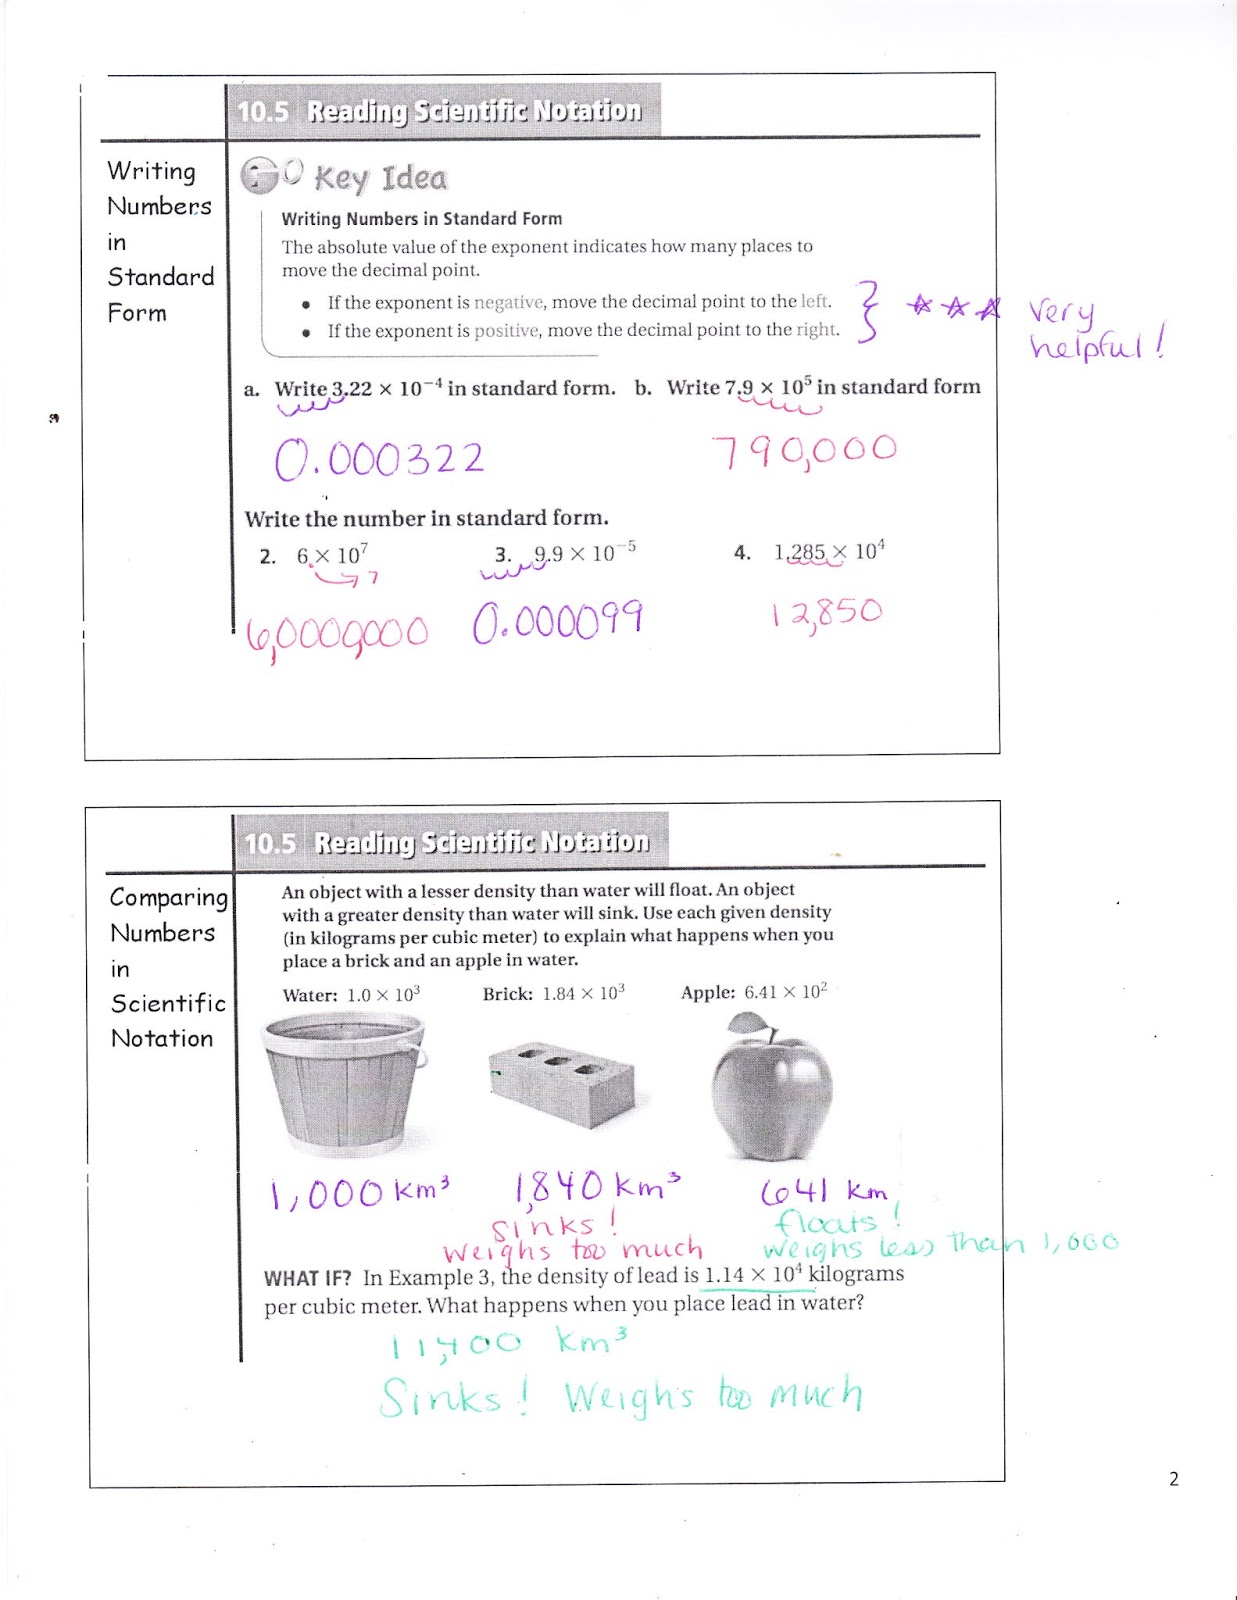 10.5 Reading Scientific Notation
Writing
Numbers
in
Standard
Form
Key Idea
Writing Numbers in Standard Form
The absolute value of the exponent indicates how many places to
move the decimal point.
• If the exponent is negative, move the decimal point to the left.
• If the exponent is positive, move the decimal point to the right.
very
helpful!
a. Write 3.22 × 10⁻⁴ in standard form. b. Write 7.9 × 10⁵ in standard form
0.000322 790,000
Write the number in standard form.
2. 6 × 10⁷ 3. 9.9 × 10⁻⁵ 4. 1.285 × 10⁴
7
6,0000,000 0.000099 12,850
10.5 Reading Scientific Notation
Comparing
Numbers
in
Scientific
Notation
An object with a lesser density than water will float. An object
with a greater density than water will sink. Use each given density
(in kilograms per cubic meter) to explain what happens when you
place a brick and an apple in water.
Water: 1.0 × 10³ Brick: 1.84 × 10³ Apple: 6.41 × 10²
1,000 km³ 1,840 km³ 641 km
sinks! floats!
weighs too much weighs less than 1,000
WHAT IF? In Example 3, the density of lead is 1.14 × 10⁴ kilograms
per cubic meter. What happens when you place lead in water?
11,400 km³
Sinks! Weighs too much
2